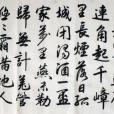 連角起千嶂
里長煙落日孤
城閉濁酒一盃
家萬里燕然未勒
歸無計羌管
霜滿地人